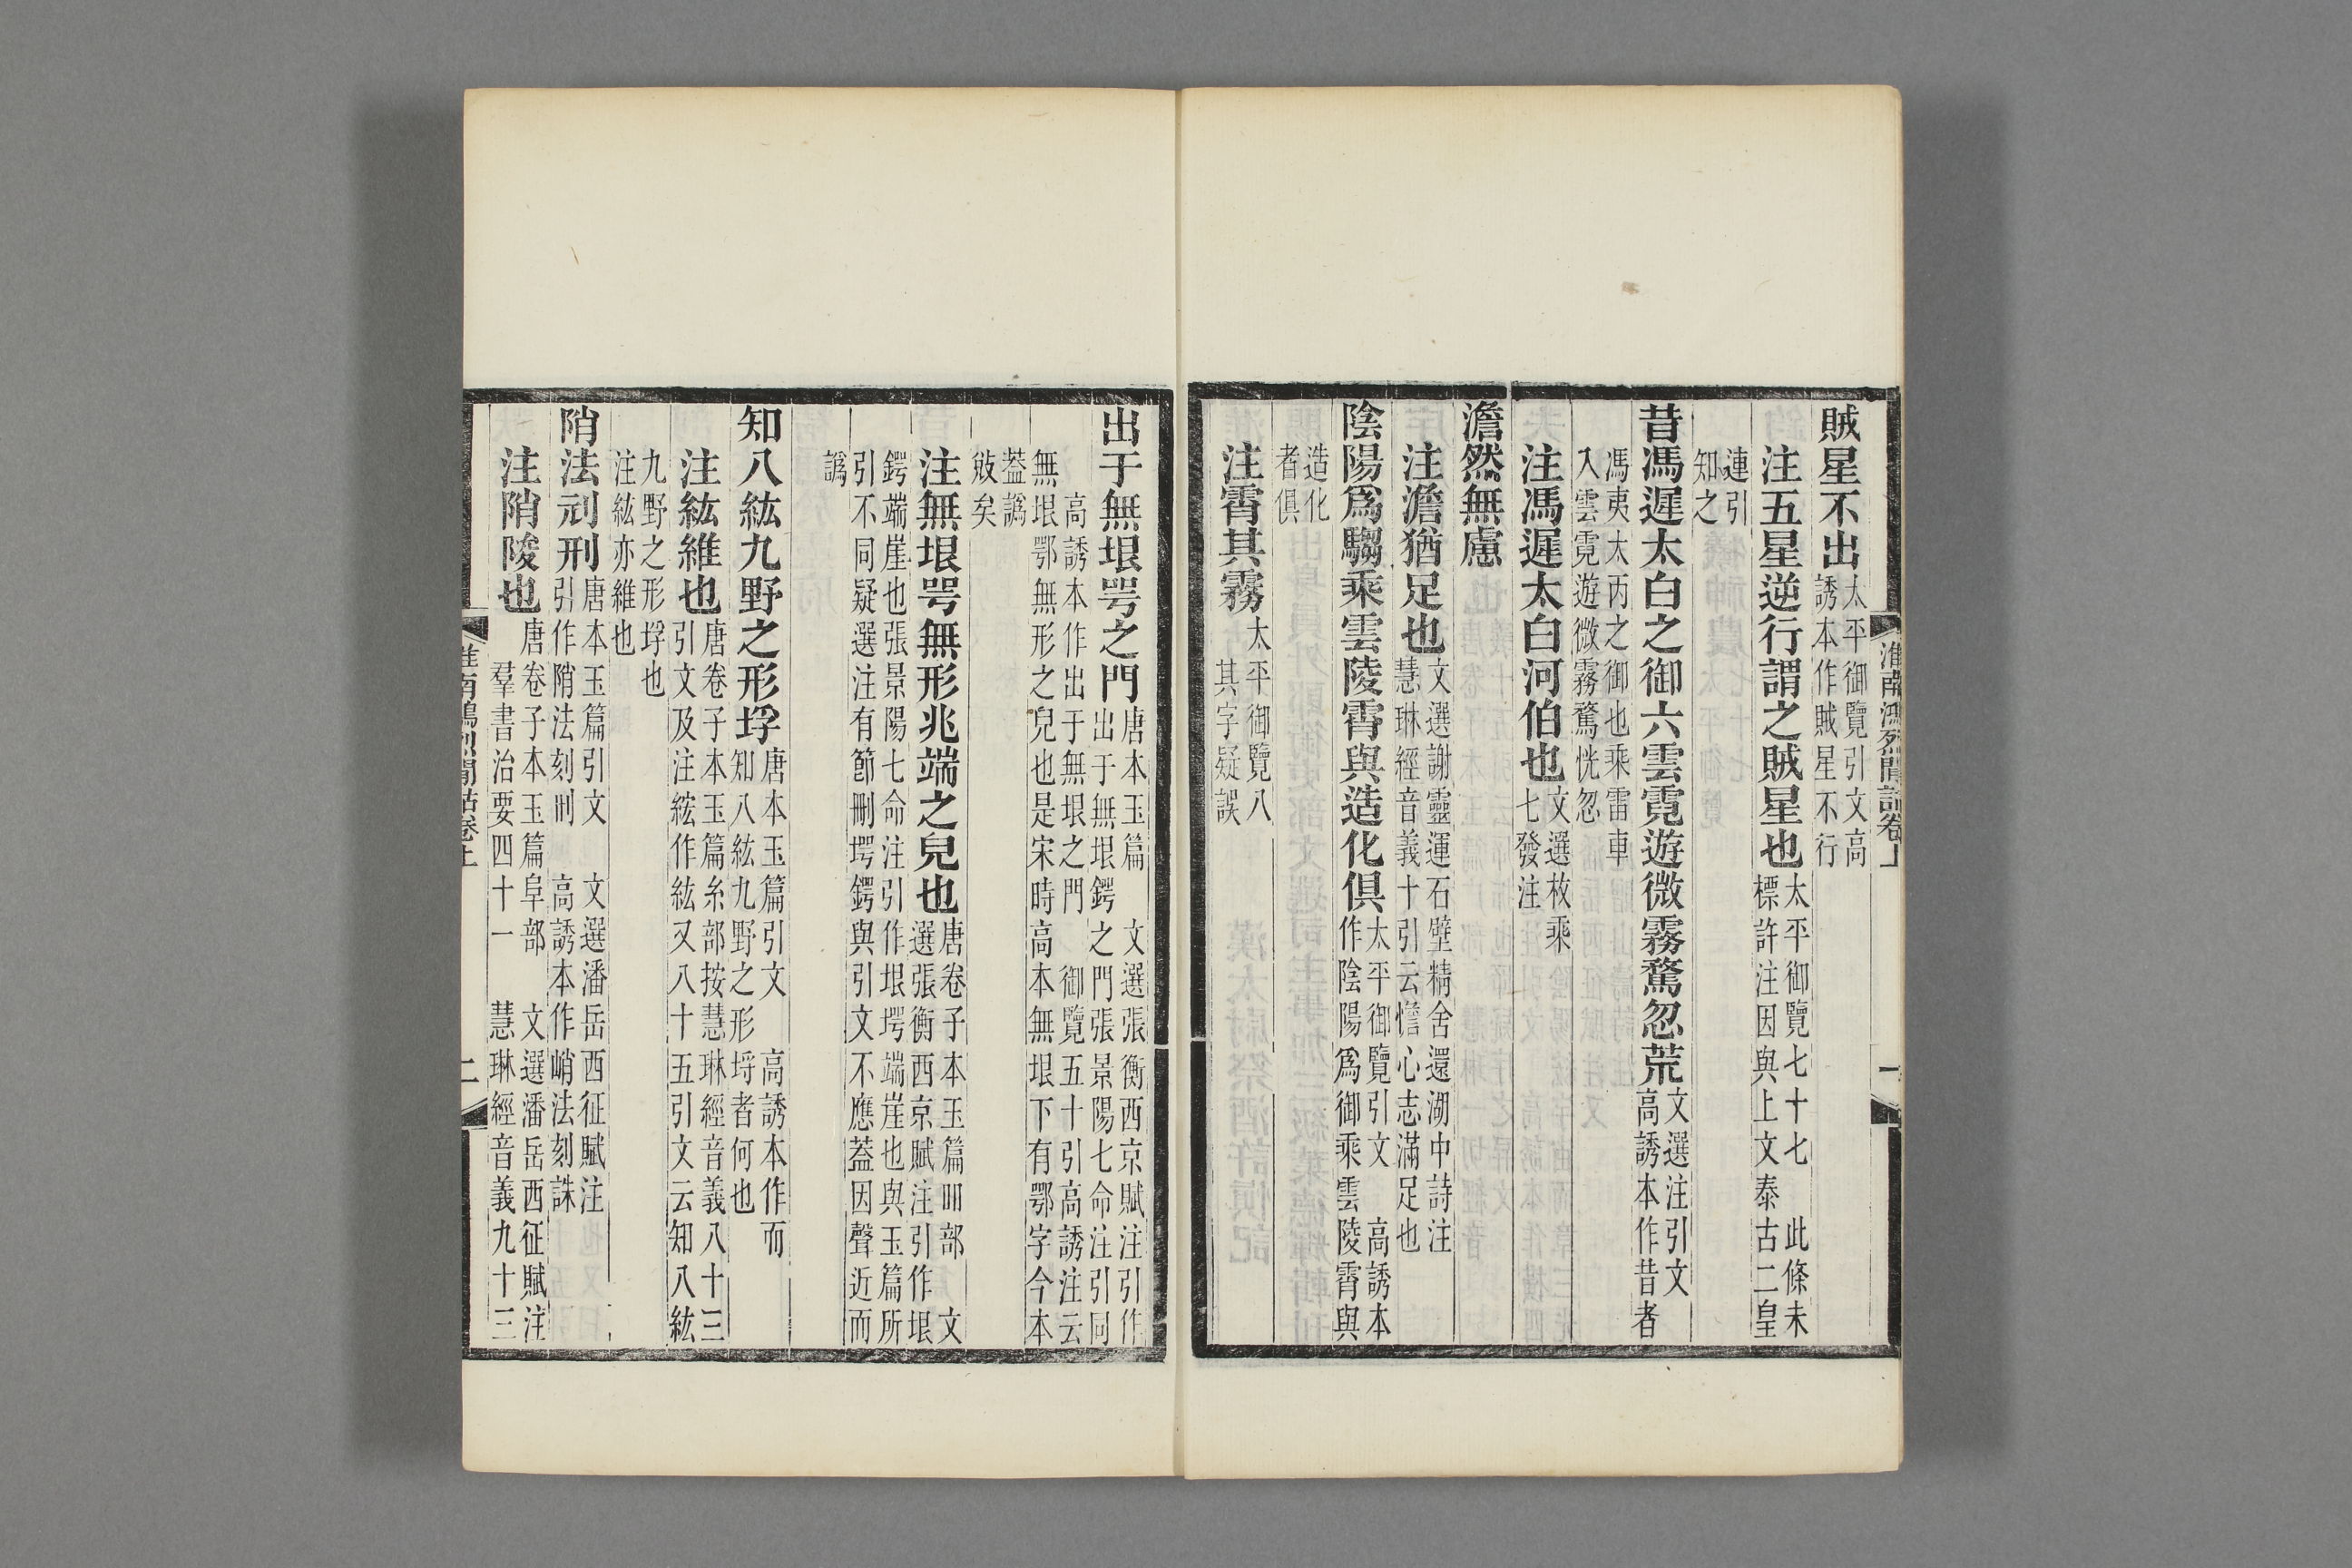 賊星不出太平御覽引文高
誘本作賊星不行
注五星逆行謂之賊星也太平御覽七十七 此條未
標許注因與上文泰古二皇
連引
知之
昔馮遲太白之御六雲霓遊微霧騖忽荒文選注引文
高誘本作昔者
馮夷太丙之御也乘雷車
入雲霓遊微霧騖恍忽
注馮遲太白河伯也文選枚乘
七發注
澹然無慮
注澹猶足也文選謝靈運石壁精舍還湖中詩注
慧琳經音義十引云憺心志滿足也
陰陽爲騶乘雲陵霄與造化俱太平御覽引文 高誘本
作陰陽爲御乘雲陵霄與
造化
者俱
注霄其霧太平御覽八
其字疑誤
淮南鴻烈閒詁卷上
一
出于無垠咢之門唐本玉篇 文選張衡西京賦注引作
出于無垠鍔之門張景陽七命注引同
高誘本作出于無垠之門 御覽五十引高誘注云
無垠鄂無形之皃也是宋時高本無垠下有鄂字今本
葢譌
敓矣
注無垠咢無形兆端之皃也唐卷子本玉篇吅部 文
選張衡西京賦注引作垠
鍔端崖也張景陽七命注引作垠堮端崖也與玉篇所
引不同疑選注有節刪堮鍔與引文不應葢因聲近而
譌
知八紘九野之形埒唐本玉篇引文 高誘本作而
知八紘九野之形埒者何也
注紘維也唐卷子本玉篇糸部按慧琳經音義八十三
引文及注綋作紘又八十五引文云知八紘
九野之形埒也
注紘亦維也
陗法刻刑唐本玉篇引文 文選潘岳西征賦注
引作陗法刻刑 高誘本作峭法刻誅
注陗陖也唐卷子本玉篇阜部 文選潘岳西征賦注
羣書治要四十一 慧琳經音義九十三
淮南鴻烈閒詁卷上
二